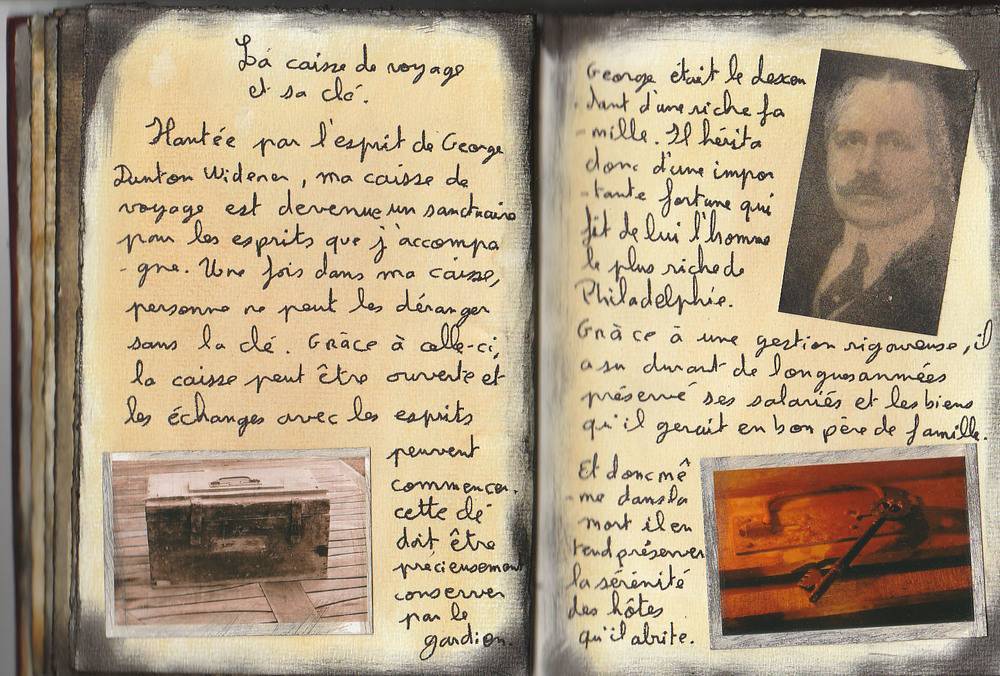 La caisse de voyage
et sa clé.
Hantée par l'esprit de George
Dunton Widener, ma caisse de
voyage est devenue un sanctuaire
pour les esprits que j'accompa
-gne. Une fois dans ma caisse,
personne ne peut les déranger
sans la clé. Grâce à celle-ci,
la caisse peut être ouverte et
les échanges avec les esprits
peuvent
commencer.
cette clé
doit être
précieusement
conserver
par le
gardien.
George était le descen
-dant d'une riche fa
-mille. Il hérita
donc d'une impor
-tante fortune qui
fit de lui l'homme
le plus riche de
Philadelphie.
Grâce à une gestion rigoureuse, il
a su durant de longues années
préservé ses salariés et les biens
qu'il gerait en bon père de famille.
Et donc mê
-me dans la
mort il en
tend préserver
la sérénité
des hôtes
qu'il abrite.